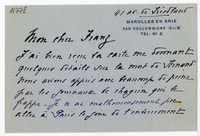 MAROLLES EN BRIE
PAR COULOMMIERS (S&M)
TEL. Nº 2
Mon cher Fanz
J'ai bien reçu la carte me donnant
quelques détails sur la mort de
nous avons appris avec beaucoup de peine
par les journaux le chagrin qui le
frappe. Je n'ai malheureusement pu
aller à Paris le jour de l'enterrement